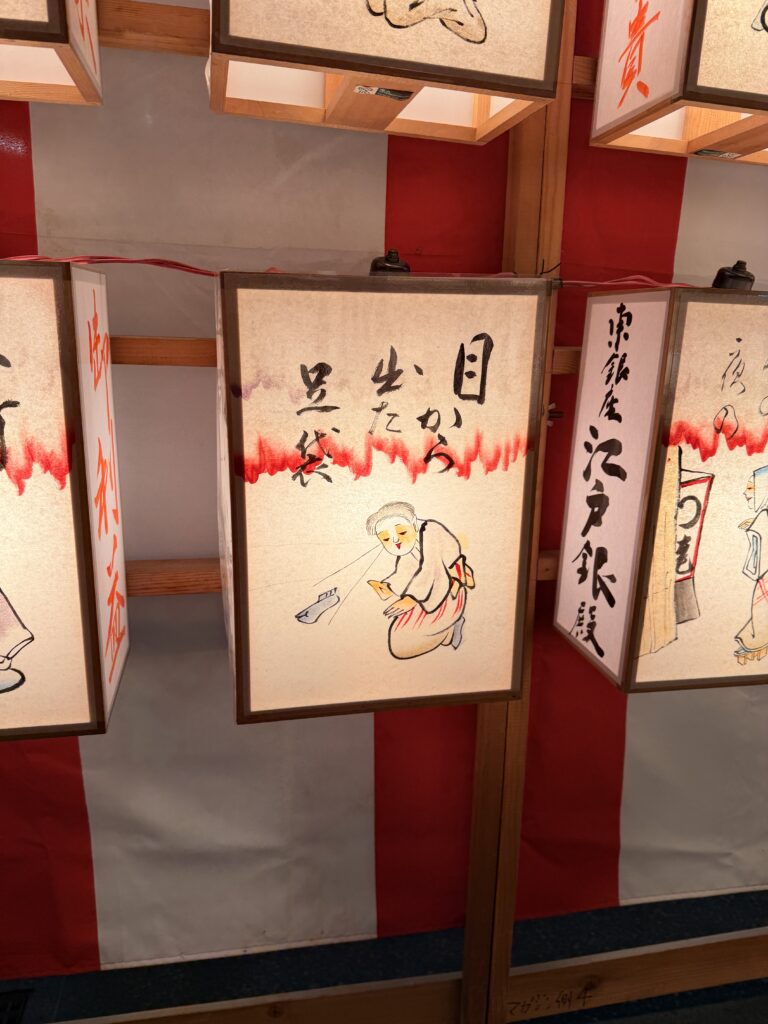 貴
目から
出た
足袋
御利益
東銀座 江戸銀殿
夜の